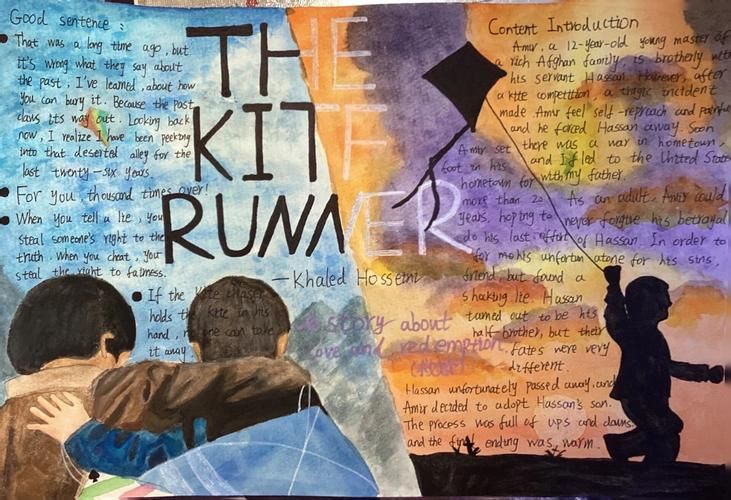 Good sentence:
That was a long time ago, but
it's wrong what they say about
the past, I've learned, about how
you can bury it. Because the past
claws its way out. Looking back
now, I realize I have been peeking
into that deserted alley for the
last twenty-six years.
For you, thousand times over!
When you tell a lie, you
steal someone's right to the
truth. When you cheat, you
steal the right to fairness.
If the kite chaser
holds the kite in his
hand, no one can take
it away
THE
KITE
RUNNER
—Khaled Hosseini
A story about
love and redemption
Content Introduction
Amir, a 12-year-old young master of
a rich Afghan family, is brotherly with
his servant Hassan. However, after
a kite competition, a tragic incident
made Amir feel self-reproach and painful
and he forced Hassan away. Soon
there was a war in hometown,
and I fled to the United States
with my father.
As an adult, Amir could
never forgive his betrayal
of Hassan. In order to
atone for his sins,
Amir set
foot in his
hometown for
more than 20
years, hoping to
do his last effort
for his unfortunate
friend but found a
shocking lie. Hassan
turned out to be his
half-brother, but their
fates were very
different.
Hassan unfortunately passed away, and
Amir decided to adopt Hassan's son.
The process was full of ups and downs
and the final ending was warm.